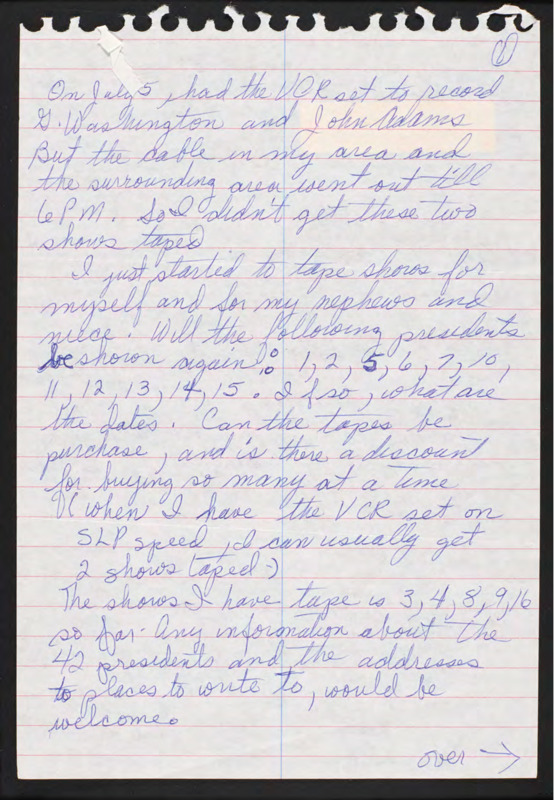 1
On July 5, had the VCR set to record
G. Washington and John Adams
But the cable in my area and
the surrounding area went out till
6 P.M. So I didn't get these two
shows taped
I just started to tape shows for
myself and for my nephews and
niece. Will the following presidents
be shown again: 1, 2, 5, 6, 7, 10,
11, 12, 13, 14, 15. If so, what are
the dates. Can the tapes be
purchase, and is there a discount
for buying so many at a time
(when I have the VCR set on
SLP speed, I can usually get
2 shows taped-)
The shows I have tape is 3, 4, 8, 9, 16
so far. Any information about the
42 presidents and the addresses
to places to write to, would be
welcome.
over →